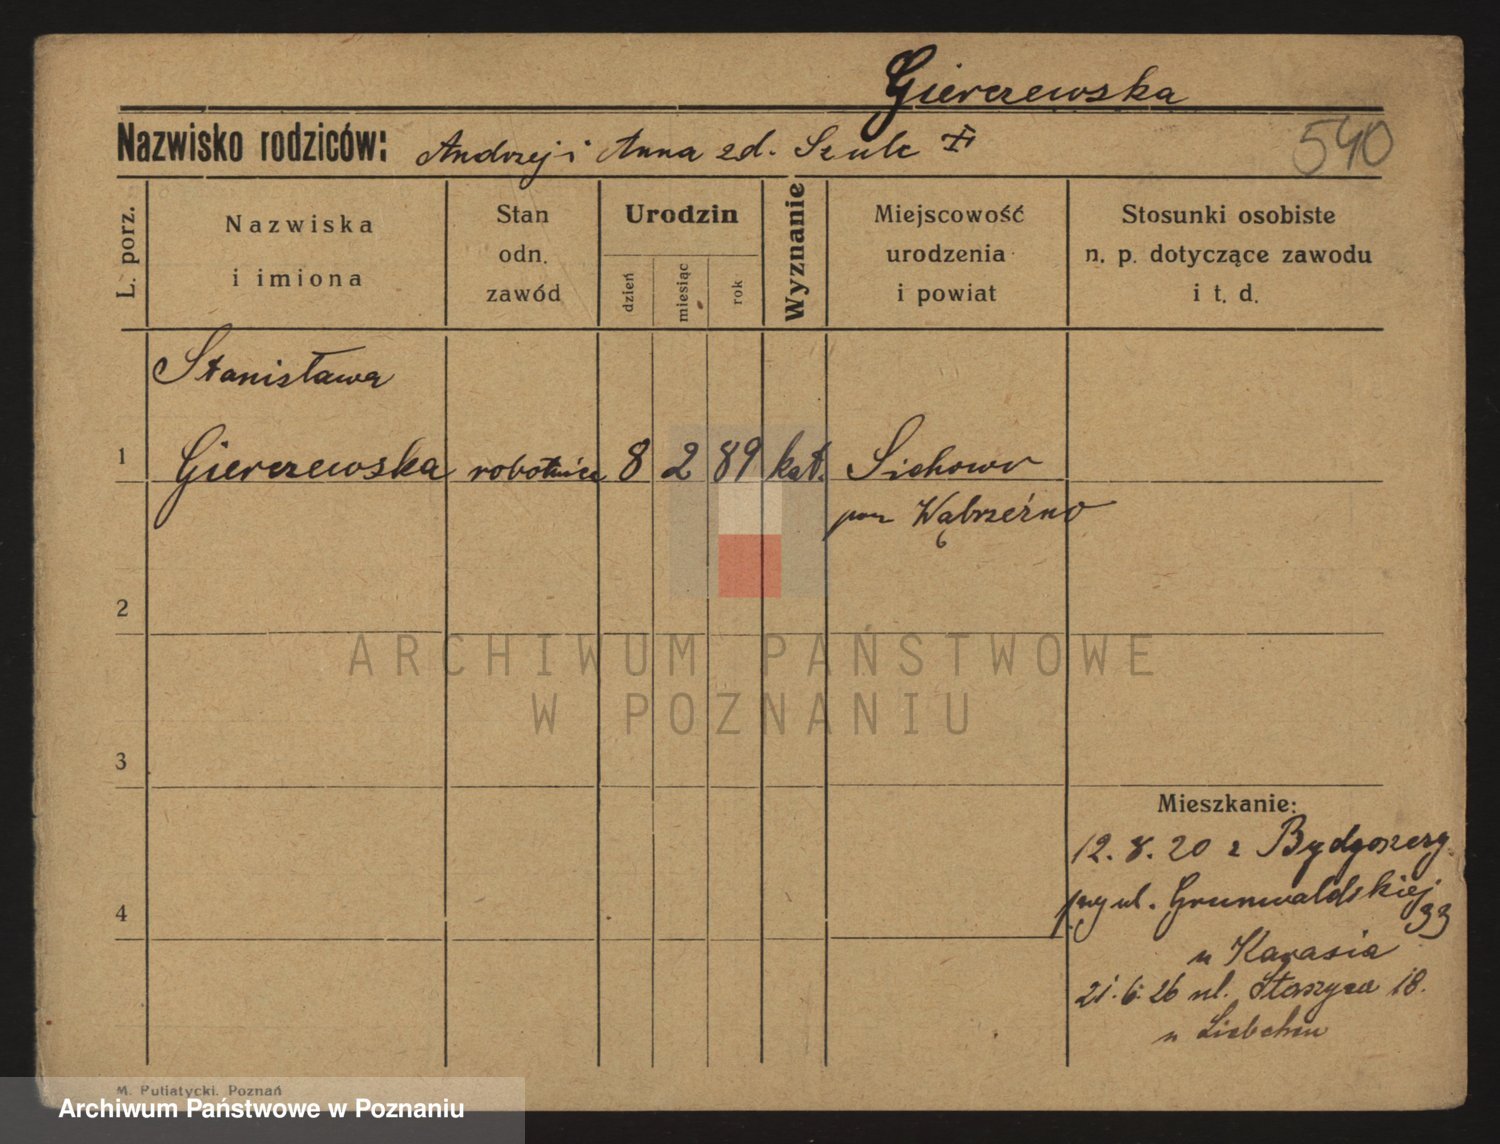 Gierczewska
Nazwisko rodziców: Andrzej i Anna zd. Szulc
540
L. porz.
Nazwiska
i imiona
Stan
odn.
zawód
Urodzin
dzień
miesiąc
rok
Wyznanie
Miejscowość
urodzenia
i powiat
Stosunki osobiste
n. p. dotyczące zawodu
i t. d.
Stanisława
1 Gierczewska robotnica 8 2 89 kat. Sichowo
pow Wąbrzeźno
2
3
Mieszkanie:
12. 8. 20 z Bydgoszczy
4 przy ul. Grunwaldskiej 33
u Karasia
21. 6. 26 ul. Staszyca 18.
u
M. Putiatycki, Poznań
ARCHIWUM PAŃSTWOWE
W POZNANIU
Archiwum Państwowe w Poznaniu